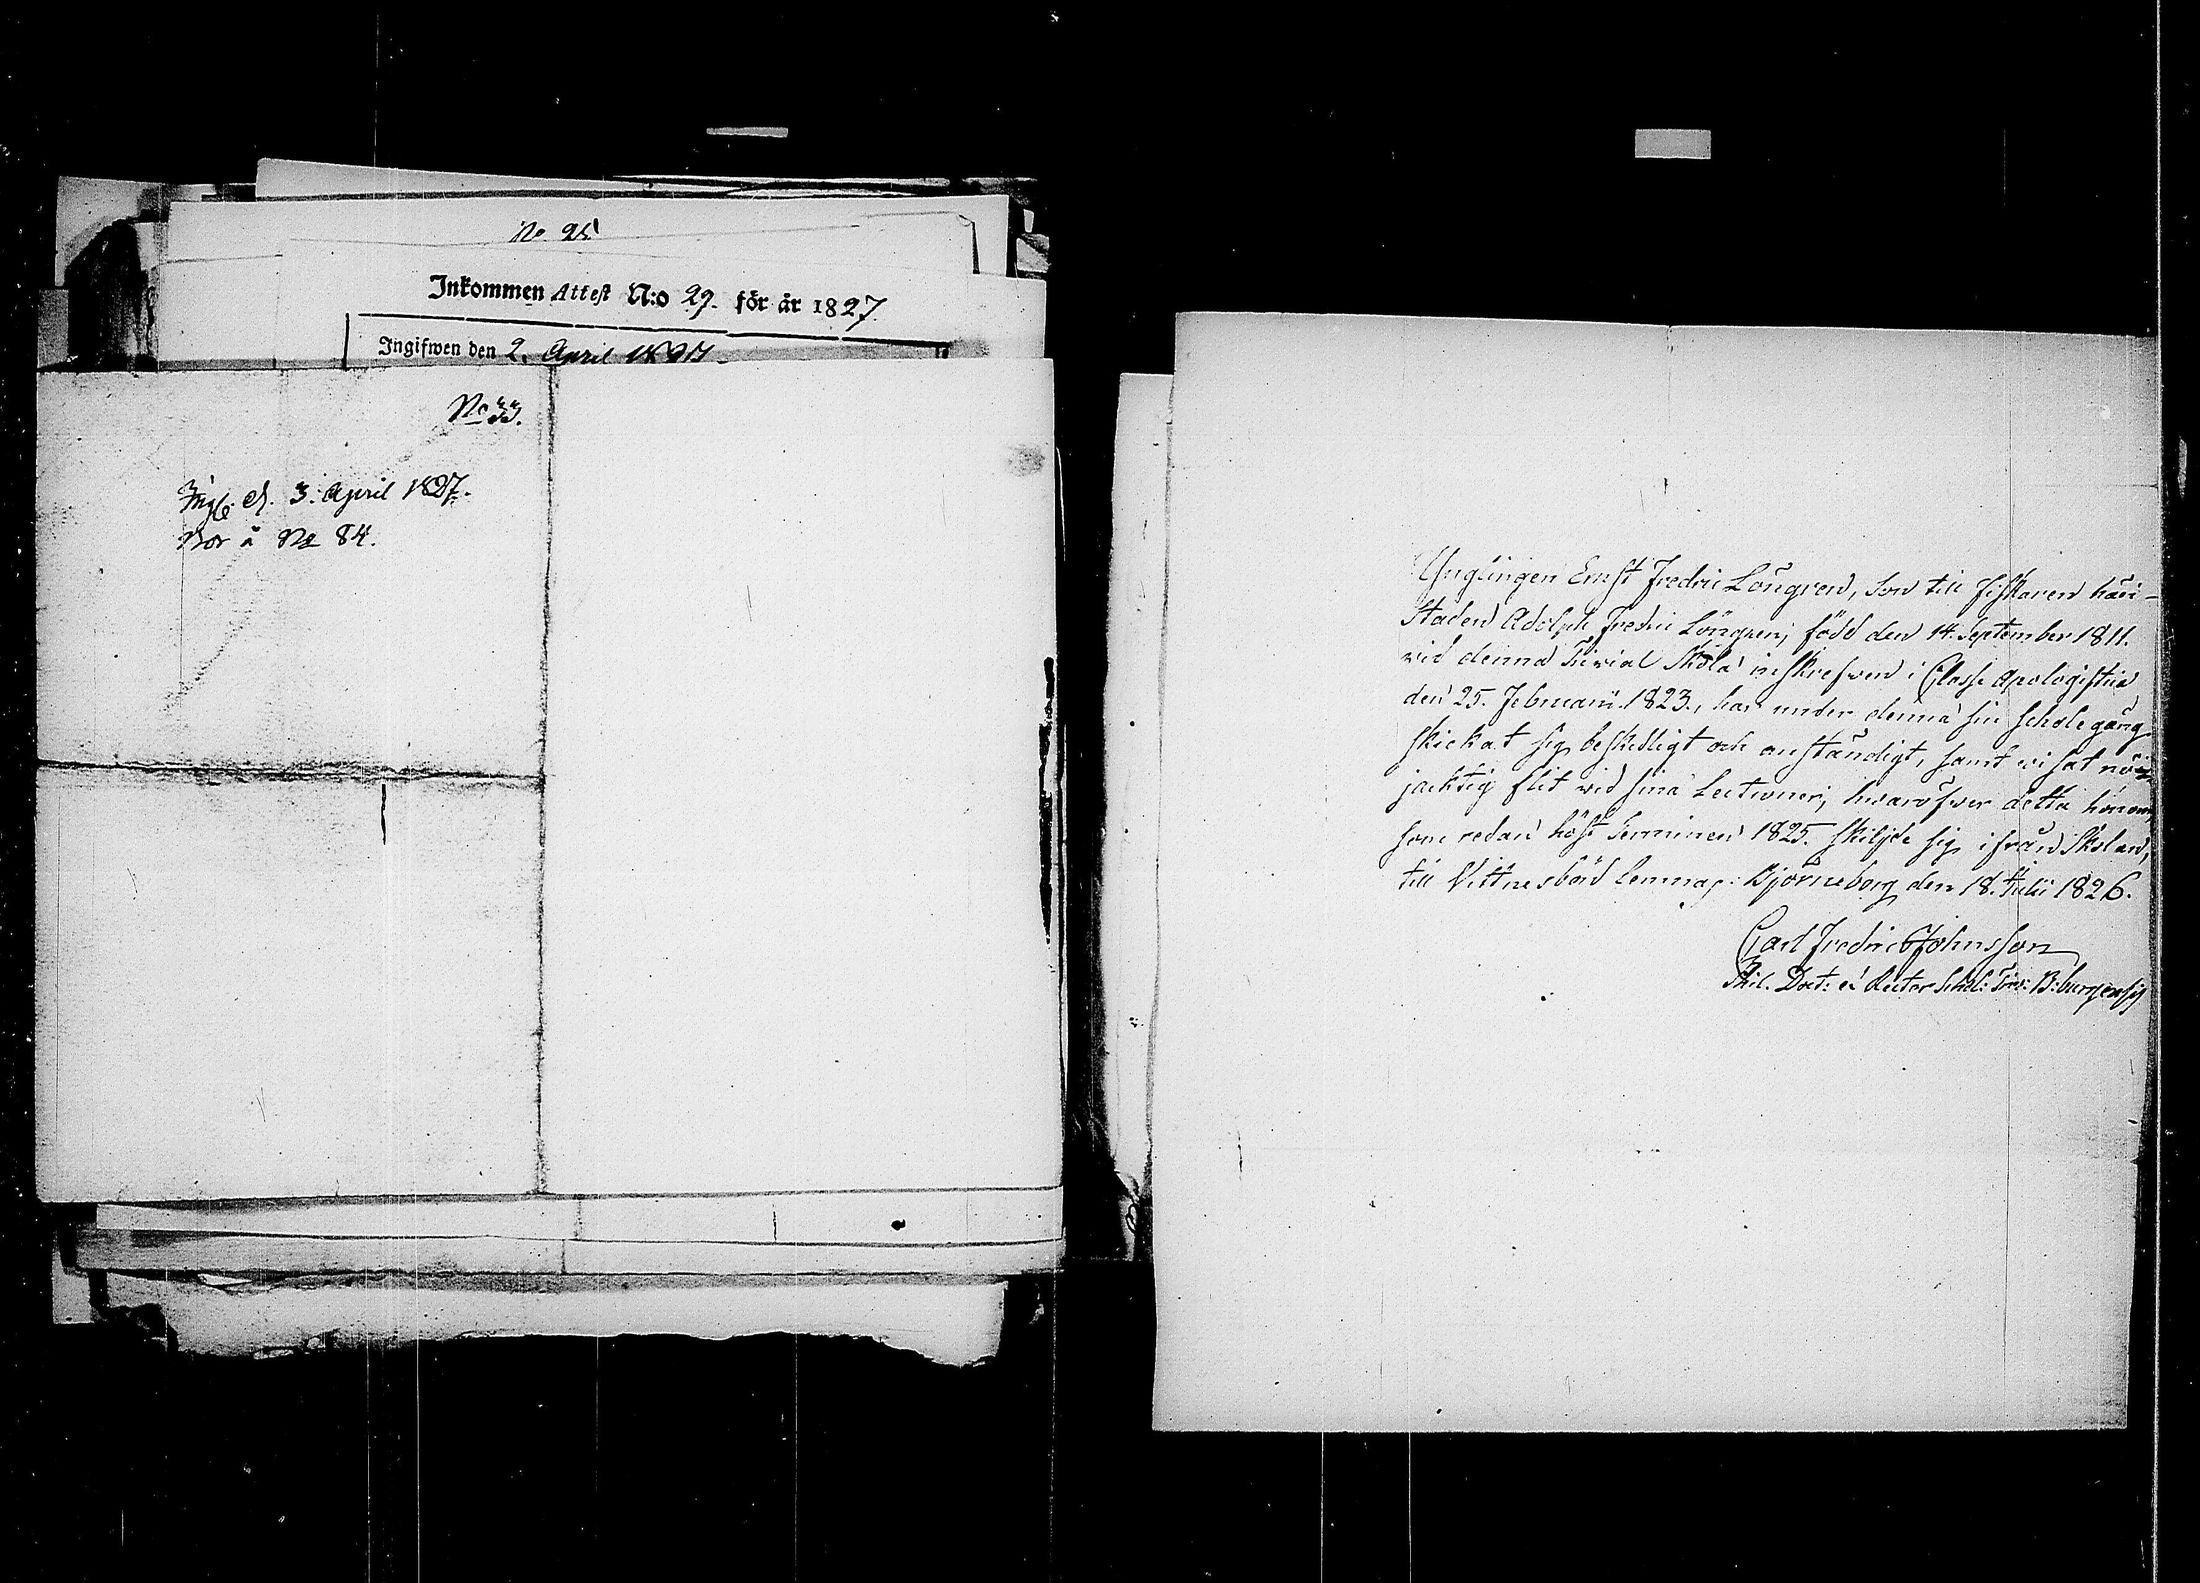 No 25
Inkommen Attest N:o 29. för år 1827
Ingifwen den 2. April 1827
No 33.
Ingf. d. 3. April 1827.
Bor å No 84.
Ynglingen Ernst Fredric Löngren, Son till Fiskaren här i
Staden Adolph Fredric Löngren, född den 14. September 1811.
vid denna Trivial Skola inskrefven i Classe Apologistica
den 25. Februarii 1823., har under denna sin scholegång
skickat sig beskedligt och anständigt, samt visat nöij-
jacktig flit vid sina Lectioner; hvaröfver detta honom,
som redan höst Terminen 1825. skiljde sig ifrån Skolan,
till Vittnesbörd lemnas: Björneborg den 18. Julii 1826.
Carl Fredric Johnsson
Phil. Doct: et Rector Schol: Triv: B:burgensis